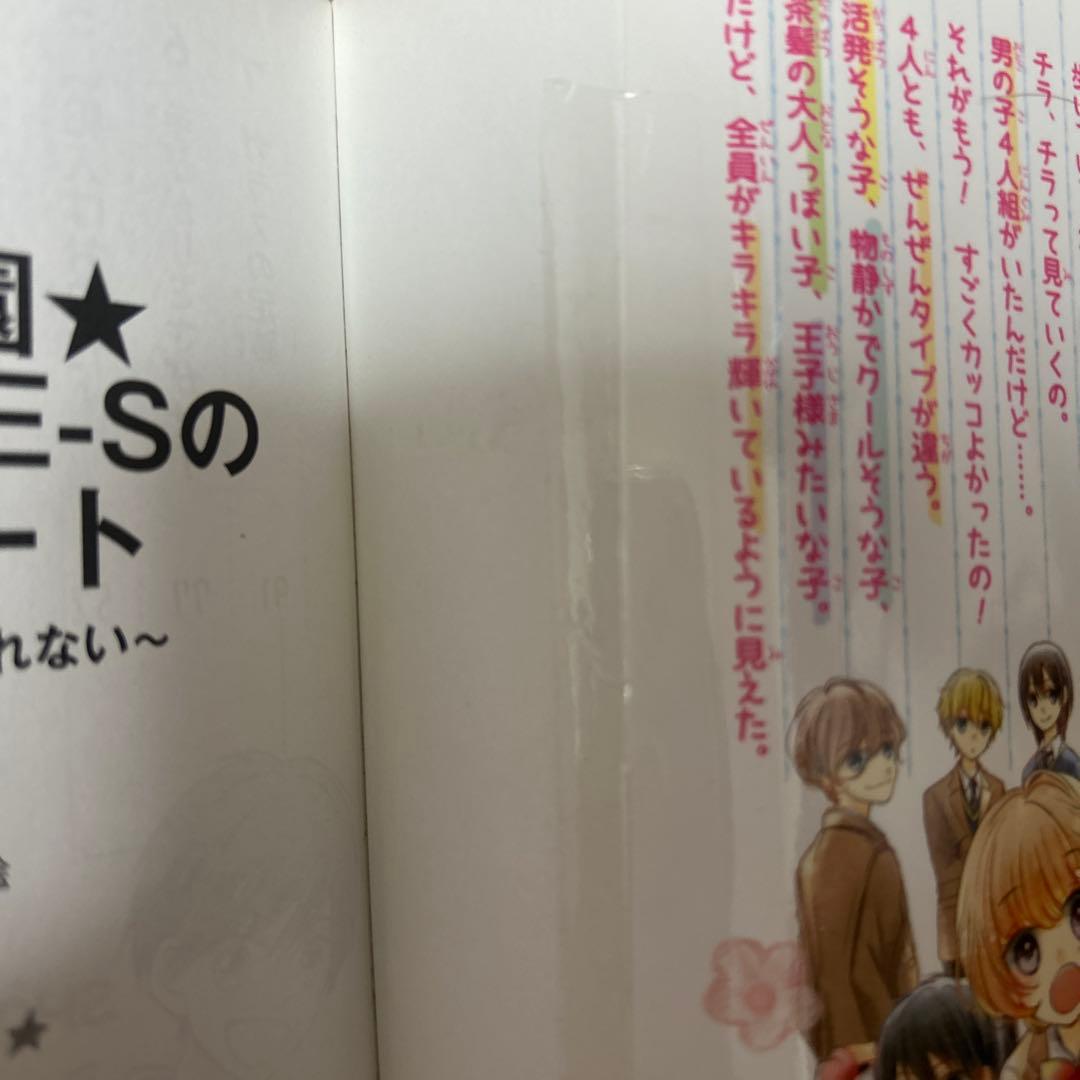 チラ、チラって見ていくの。
男の子4人組がいたんだけど……。
それがもう！　すごくカッコよかったの！
4人とも、ぜんぜんタイプが違う。
活発そうな子、物静かでクールそうな子、
茶髪の大人っぽい子、王子様みたいな子。
だけど、全員がキラキラ輝いているように見えた。
園★
三-Sの
ート
れない〜
絵
★